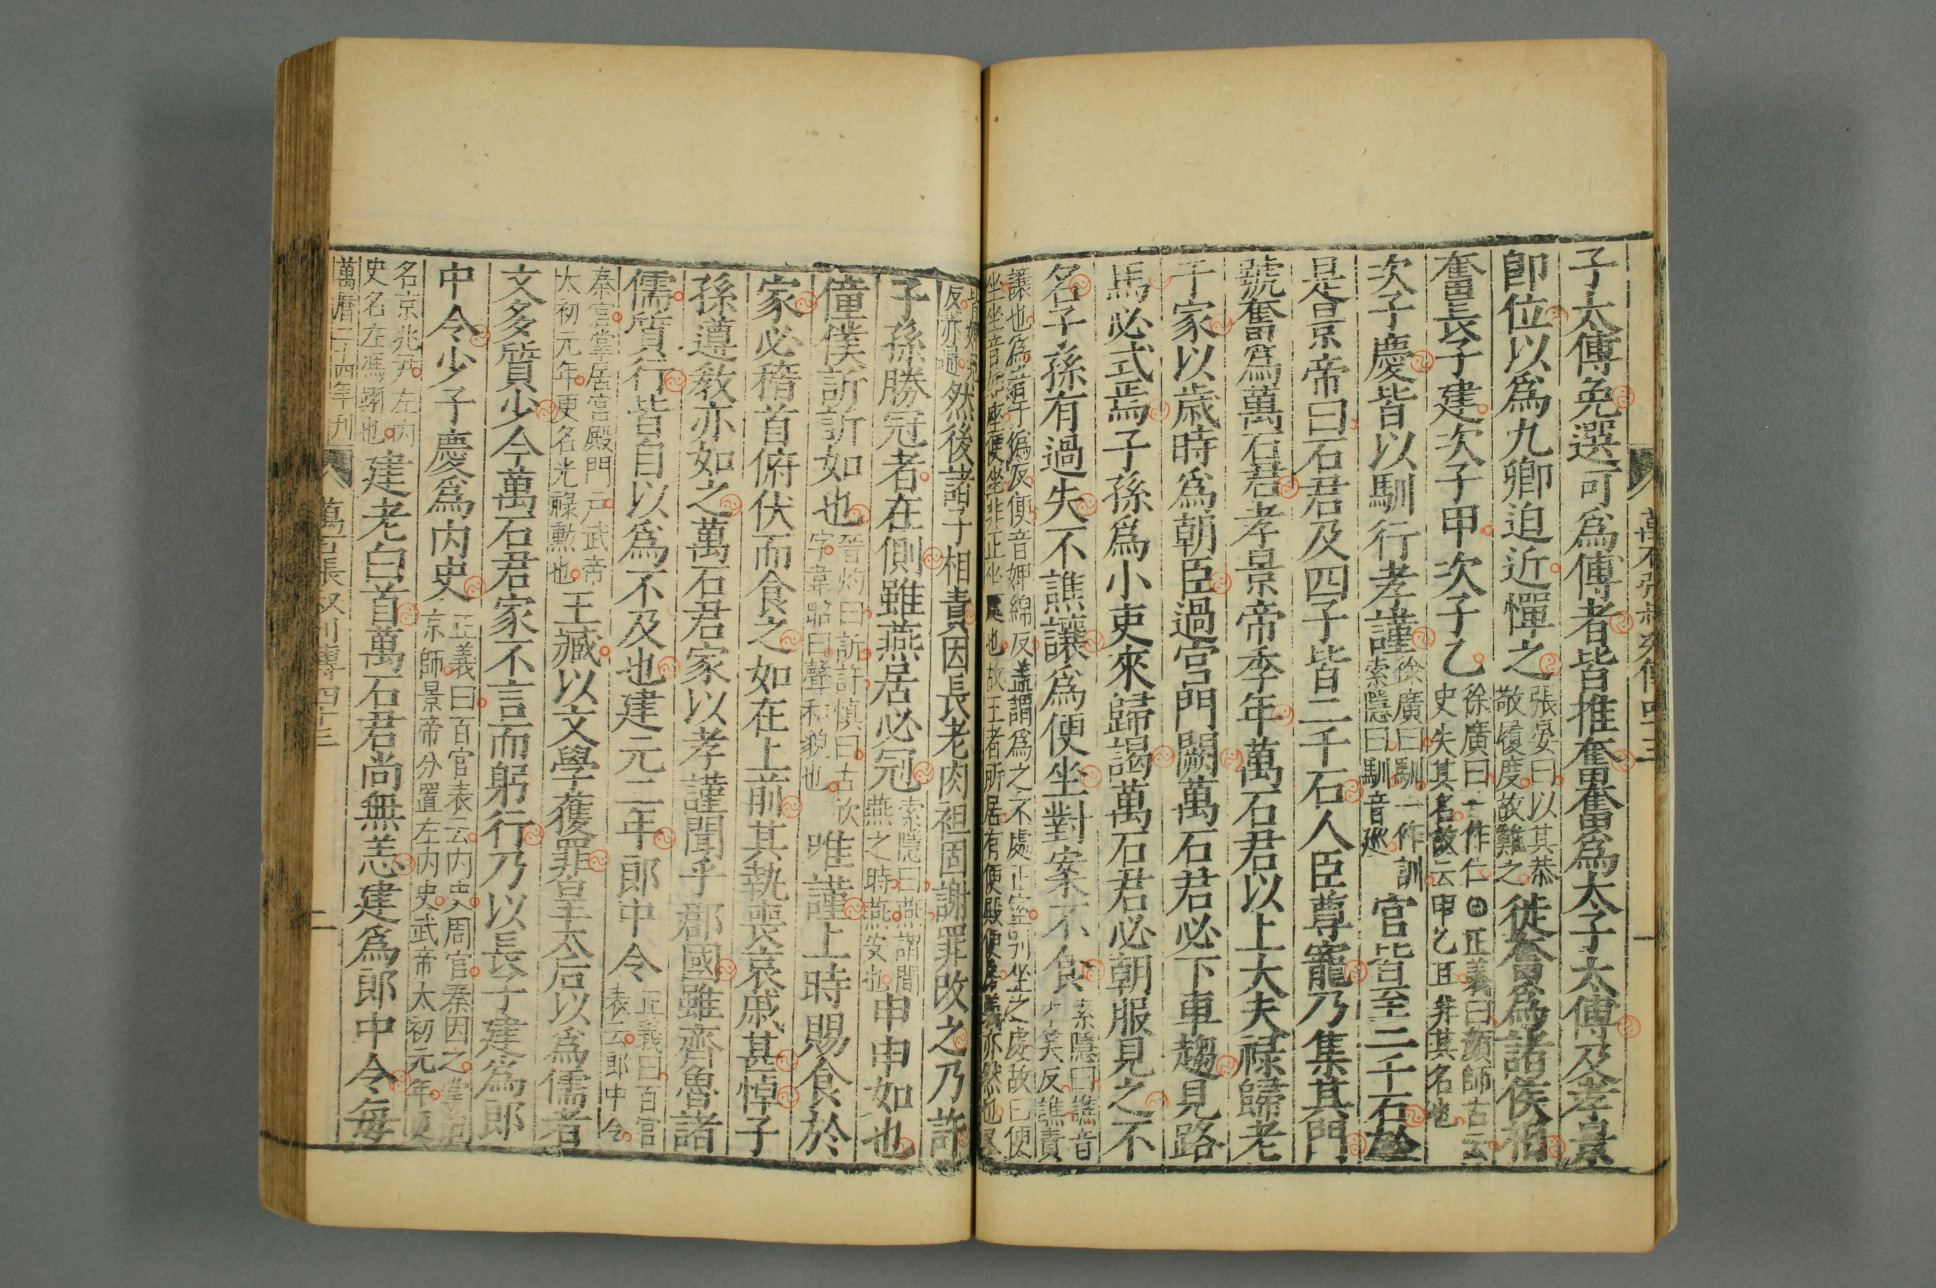 萬石張叔列傳四十三 一
子太傅免選可爲傅者皆推奮奮爲太子太傅及孝景
即位以爲九卿迫近憚之張晏曰以其恭敬履度故難之徙奮爲諸侯相
奮長子建次子甲次子乙徐廣曰一作仁○正義曰顏師古云史失其名故云甲乙耳非其名也
次子慶皆以馴行孝謹徐廣曰馴一作訓索隱曰馴音巡官皆至二千石於
是景帝曰石君及四子皆二千石人臣尊寵乃集其門
號奮爲萬石君孝景帝季年萬石君以上大夫祿歸老
于家以歲時爲朝臣過宮門闕萬石君必下車趨見路
馬必式焉子孫爲小吏來歸謁萬石君必朝服見之不
名子孫有過失不譙讓爲便坐對案不食索隱曰譙音才笑反譙責
讓也爲音于僞反便音婢綿反蓋謂爲之不處正室別坐之處故曰便坐坐音便坐非正坐處也故王者所居有便殿便房義亦然也
反亦通然後諸子相責因長老肉袒固謝罪改之乃許
子孫勝冠者在側雖燕居必冠索隱曰燕謂閒燕之時燕安也申申如也
僮僕訢訢如也晉灼曰訢許慎曰古欣字韋昭曰聲和貌也唯謹上時賜食於
家必稽首俯伏而食之如在上前其執喪哀戚甚悼子
孫遵敎亦如之萬石君家以孝謹聞乎郡國雖齊魯諸
儒質行皆自以爲不及也建元二年郎中令正義曰百官表云郎中令
秦官掌居宮殿門戶武帝太初元年更名光祿勳也王臧以文學獲罪皇太后以爲儒者
文多質少今萬石君家不言而躬行乃以長子建爲郎
中令少子慶爲內史正義曰百官表云內史周官秦因之掌治京師景帝分置左內史武帝太初元年更
名京兆尹左內史名左馮翊也建老白首萬石君尚無恙建爲郎中令每
萬曆二十四年刊 萬石張叔列傳四十三 二